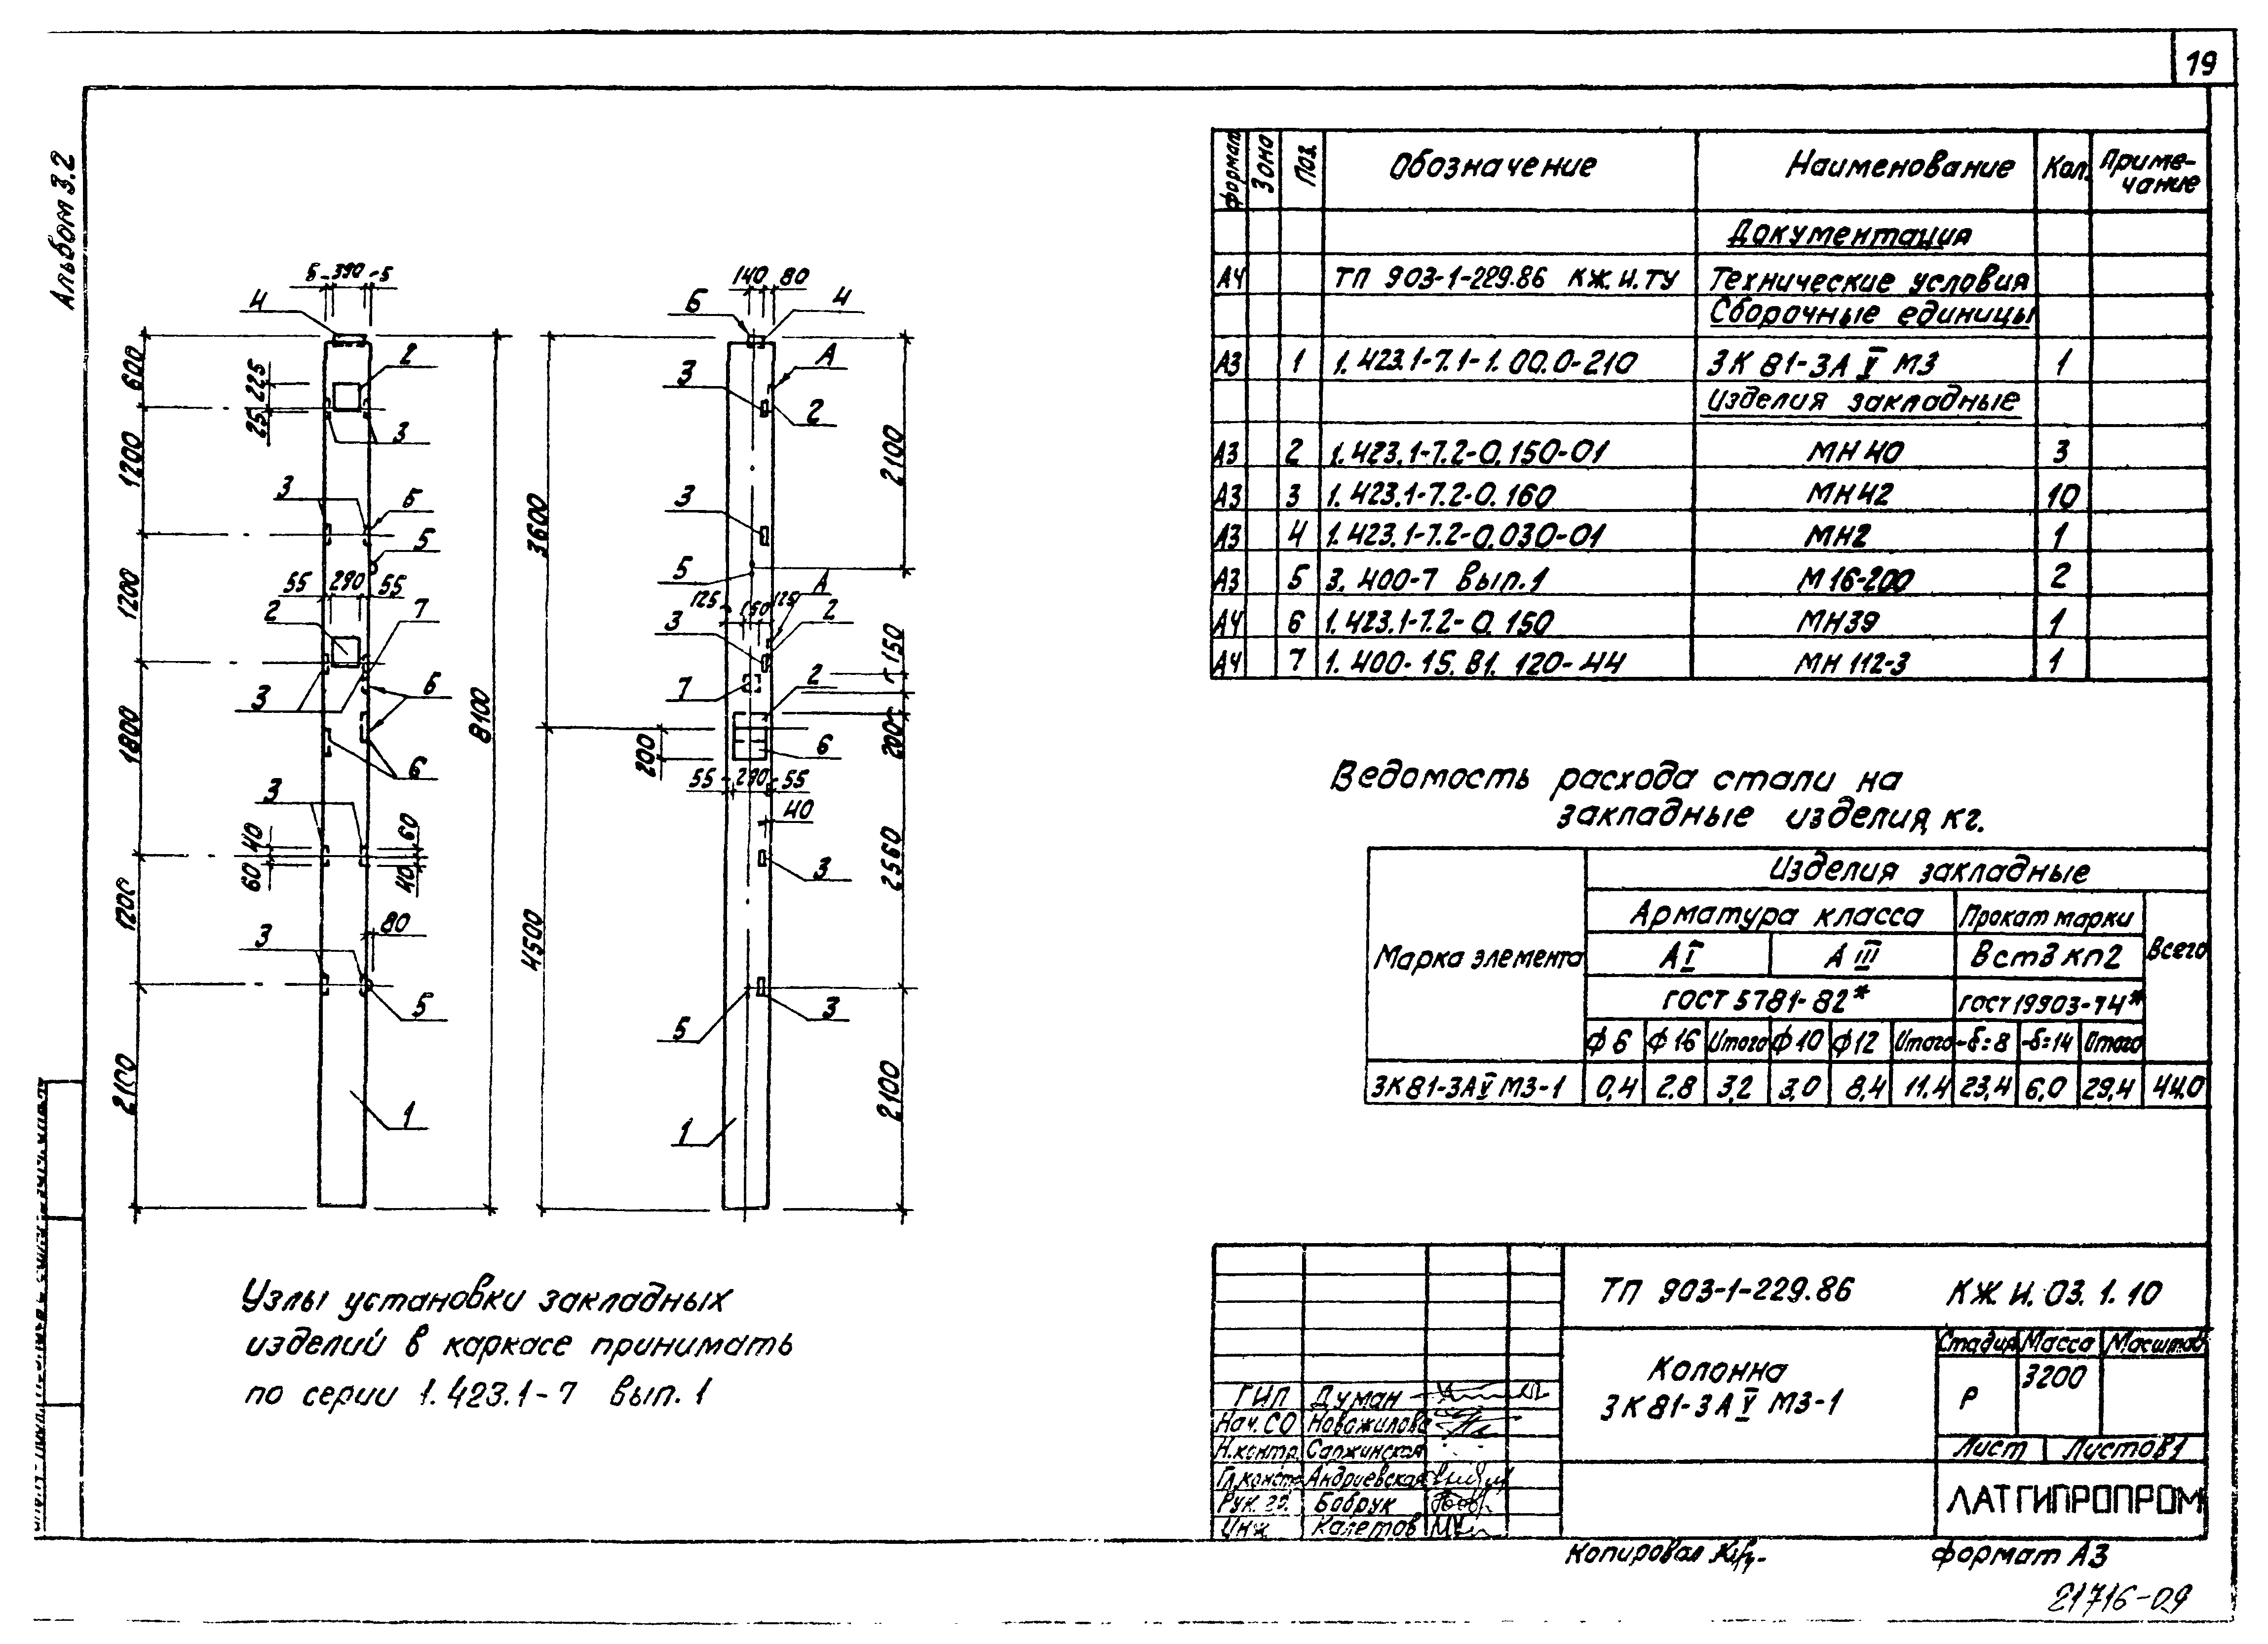 19
Альбом 3.2
Формат Зона Поз. Обозначение Наименование Кол. Приме-
чание
Документация
А4 ТП 903-1-229.86 КЖ.И.ТУ Технические условия
Сборочные единицы
А3 1 1.423.1-7.1-1.00.0-210 3К 81-3А V М3 1
Изделия закладные
А3 2 1.423.1-7.2-0.150-01 МН 40 3
А3 3 1.423.1-7.2-0.160 МН 42 10
А3 4 1.423.1-7.2-0.030-01 МН2 1
А3 5 3.400-7 вып.1 М16-200 2
А4 6 1.423.1-7.2-0.150 МН39 1
А4 7 1.400-15.В1.120-44 МН 112-3 1
5 390 5
4
2
600
225
25
3
1200
3
6
5
1200
55 290 55
2
7
3
6
1800
8100
6
3
40
60
60
40
1200
80
3
5
2100
1
140 80
6
4
А
3
2
2100
3
3600
5
А
125 150 125
3
2
150
7
2
200
200
6
55 290 55
40
2560
3
4500
5
3
2100
1
Ведомость расхода стали на
закладные изделия, кг.
Марка элемента
Изделия закладные
Арматура класса Прокат марки
А I А III Вст3 кп2 Всего
ГОСТ 5781-82* ГОСТ 19903-74*
ф 6 ф 16 Итого ф 10 ф 12 Итого -δ=8 -δ=14 Итого
3К81-3А V М3-1 0,4 2.8 3,2 3,0 8,4 11.4 23,4 6,0 29,4 44,0
Узлы установки закладных
изделий в каркасе принимать
по серии 1.423.1-7 вып. 1
ТП 903-1-229.86 КЖ.И.03.1.10
Колонна
3К81-3А V М3-1
Стадия Масса Масштаб
Р 3200
Лист Листов 1
ЛАТГИПРОПРОМ
ГИП Думан
Нач. СО Новожилова
Н.контр. Саржинская
Гл.констр Андриевская
Рук. гр. Бобрук
Инж Калетов
Копировал
формат А3
21716-09